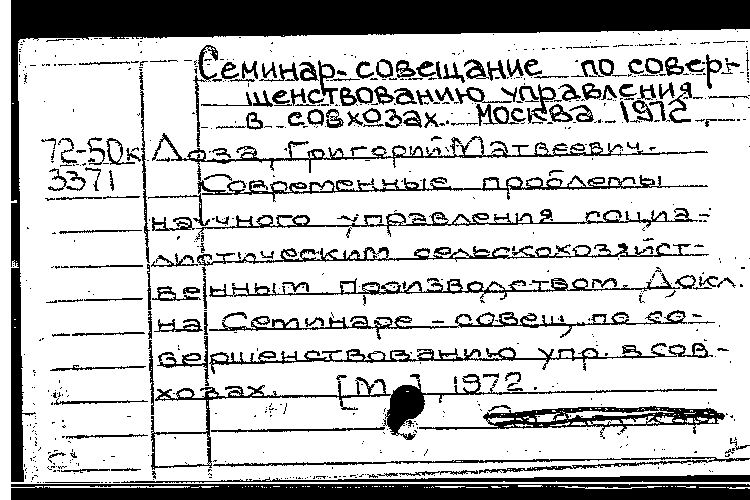 Семинар-совещание по совер-
шенствованию управления
в совхозах. Москва. 1972.
72-50к Лоза, Григорий Матвеевич.
3371 Современные проблемы
научного управления социа-
листическим сельскохозяйст-
венным производством. Докл.
на Семинаре-совещ. по со-
вершенствованию упр. в сов-
хозах. [М.], 1972.